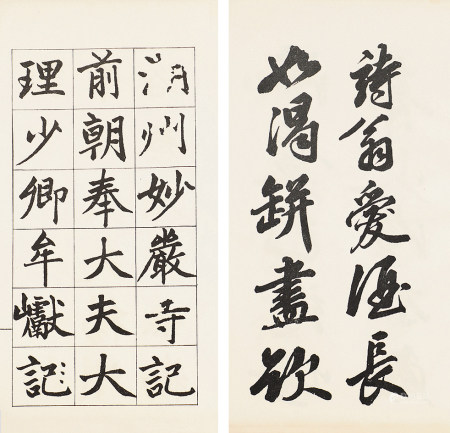 詩翁愛酒長
如渴缾盡欲
湖州妙嚴寺記
前朝奉大夫大
理少卿牟巘記